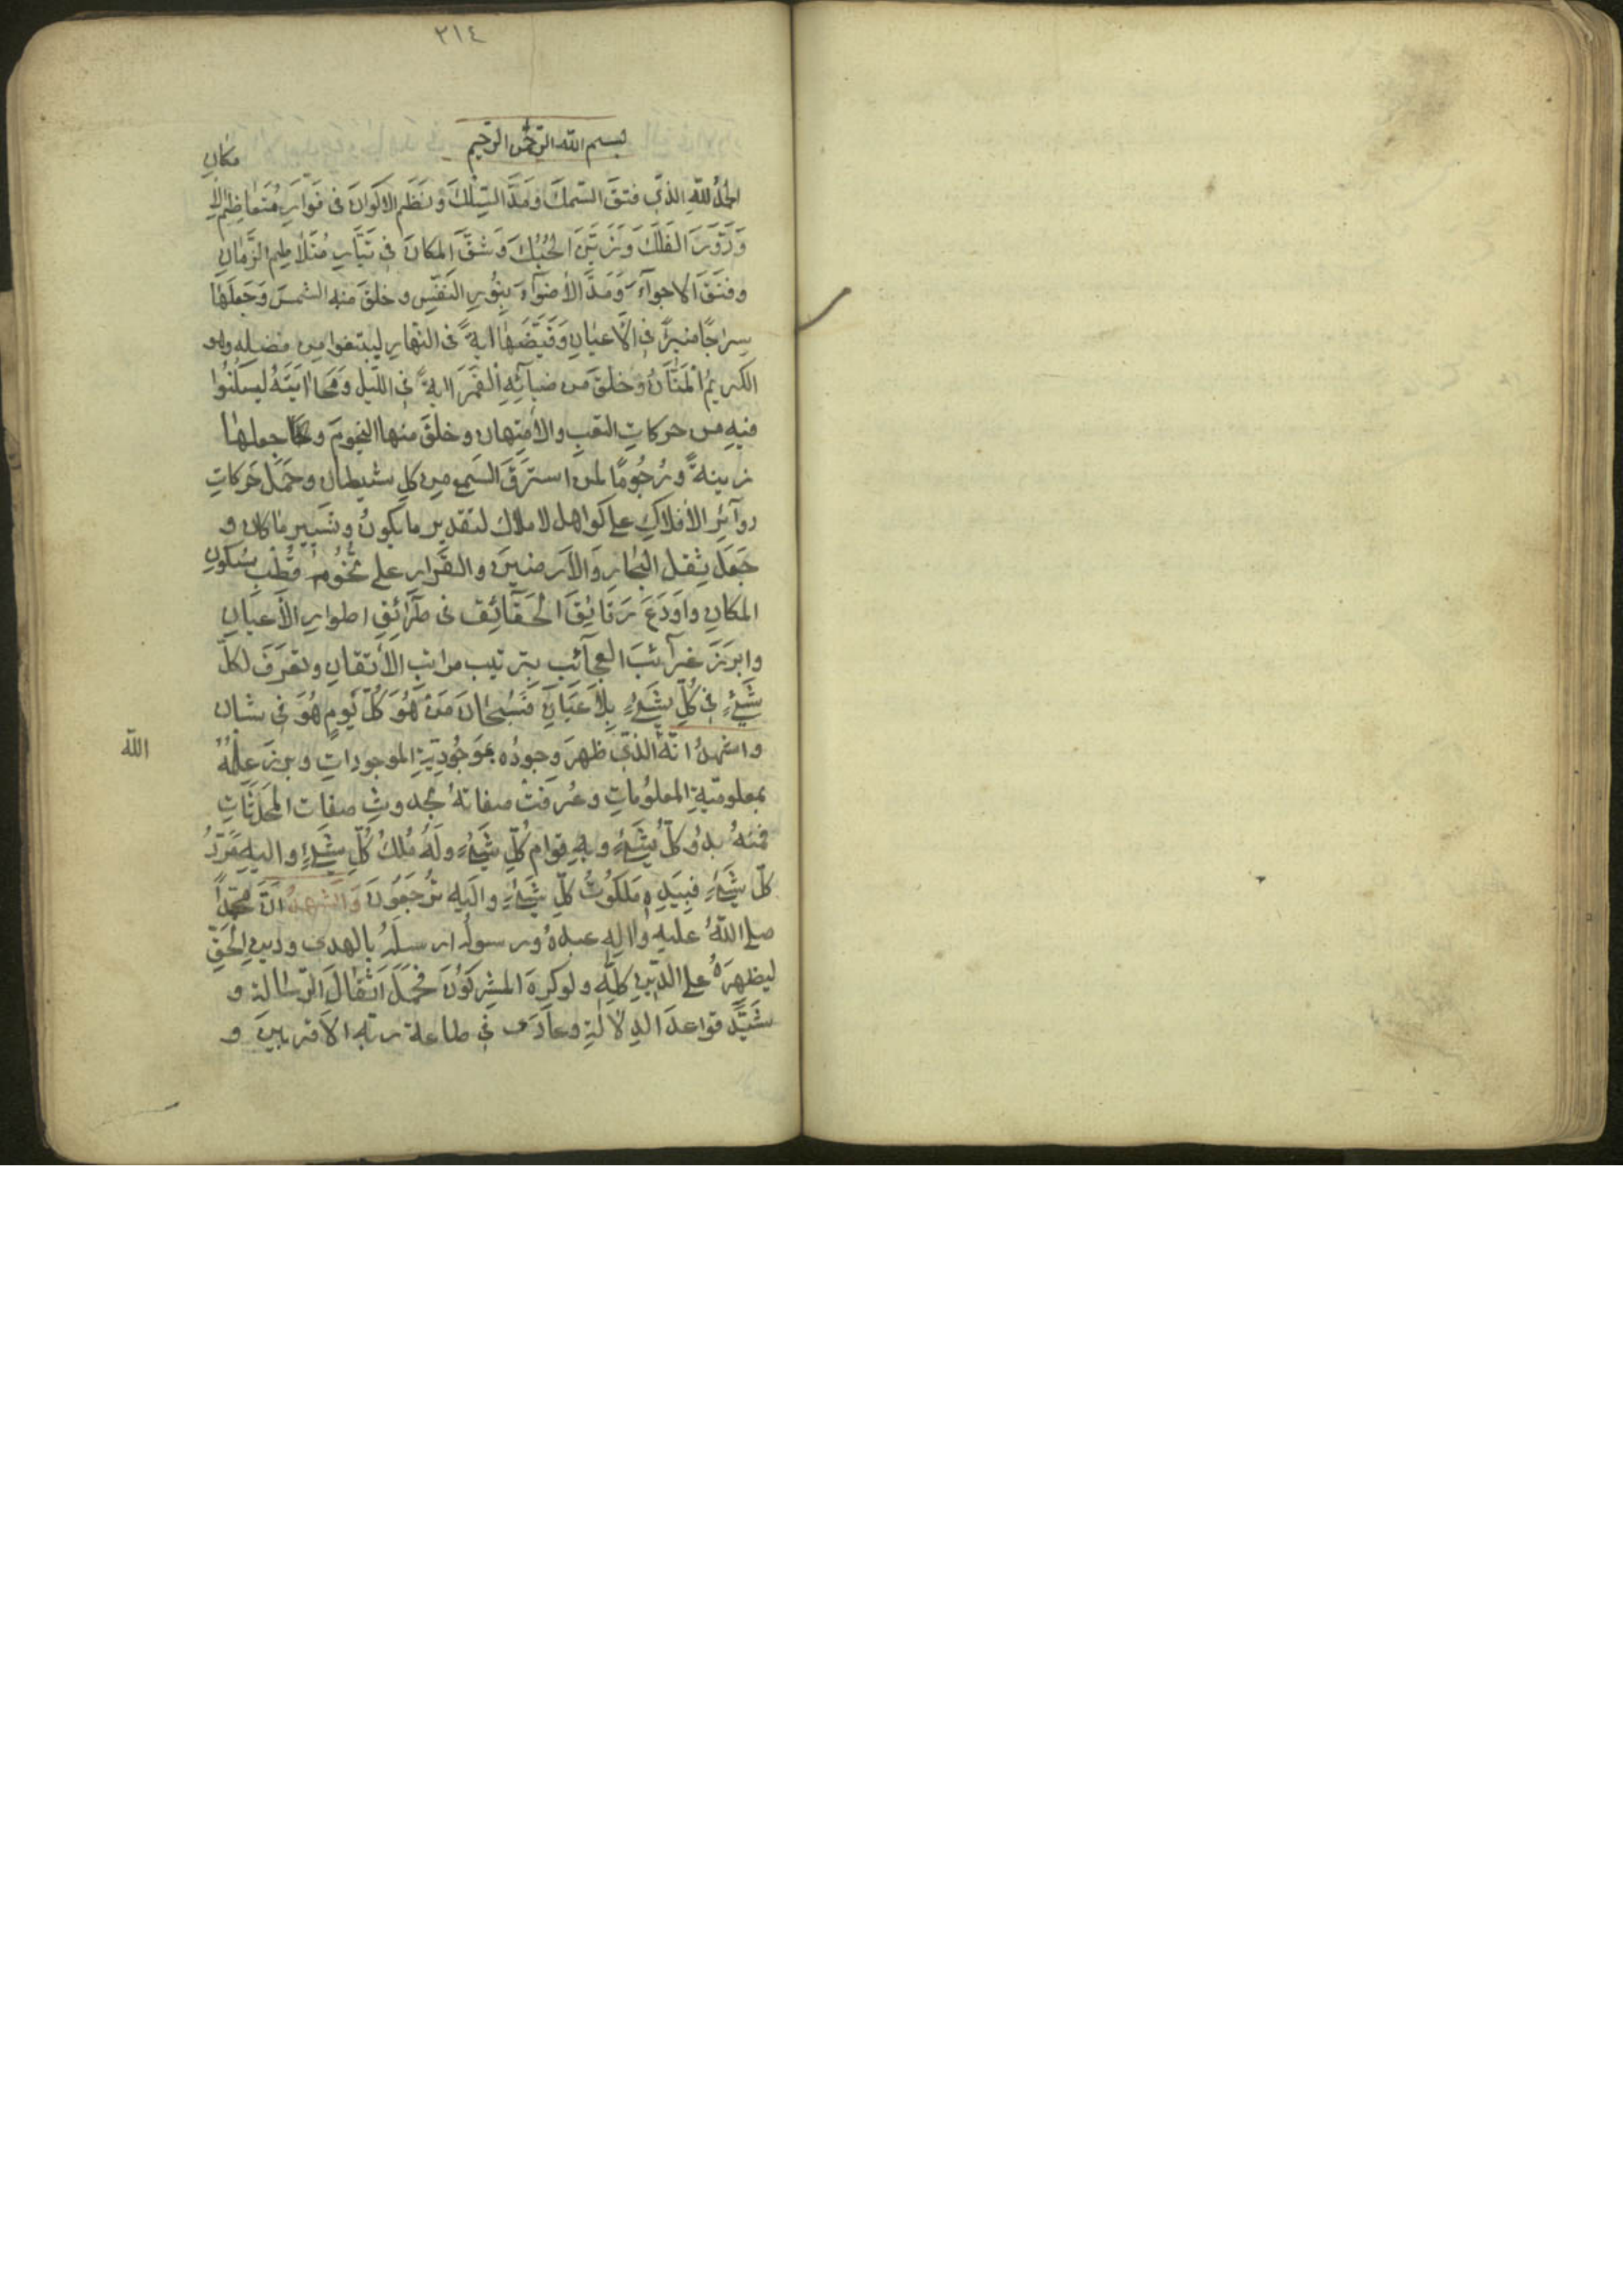 ٢١٤
بسم الله الرحمن الرحيم
الحمدُ للهِ الذي فتقَ السّمكَ ومَدَّ السِّلكَ وَنَظَم الاكَوانَ فى فَوّارِ مُتَعاظِم الا مكانِ
وَدَوَّرَ الفلَكَ وَزَيَّنَ الحُبُكَ وَشقَّ المكانَ فى تَيَّارِ مُتَلاطِمِ الزَّمانِ
وفتقَ الاجوآءَ وَمَدَّ الأضوآءَ بِنُورِ النَفَسِ وخلقَ منه الشمسَ وَجَعلَها
سِراجًا منيرًا فى الأعيانِ وَقَيَّضَها ايةً فى النَّهارِ ليبتغوا من فضلِهِ وهو
الكريمُ المَنّانُ وخلقَ من ضيآئِهِ القَمَرَ ايةً فى اللّيلِ وَمَحا ايتَهُ ليسكُنُوا
فيهِ من حركاتِ التعبِ والأمتِهانِ وخلقَ منها النجومَ وجعلها
زينةً ورُجُومًا لمن استرَقَ السّمع من كلِ شيطان وحَمَل حَركاتِ
دوآئرِ الأفلاكِ على كواهل الاملاك لتقدير ما يكونُ وتسيير ما كان و
جَعَلَ ثِقلَ البحارِ وَالأرَضينَ والقَرارِ على تُخُومِ قُطْبِ سُكونِ
المكانِ واَودَعَ رَقائِقَ الحَقآئِق فى طرَآئِقِ اطوارِ الأعيانِ
وابرَزَ غرآئبَ العجآئبِ بترتيب مراتبِ الأتقانِ وتعَرَّفَ لكلّ
شَىءٍ فى كُلّ شَىءٍ بِلاَ عَيَانٍ فسُبْحانَ مَن هُوَ كُلّ يَومٍ هُوَ فى شان
واشهدُ انّهُ الذّى ظهرَ وجودُه بموَجُوديّةِ الموجوداتِ وبرزَ عِلْمُهُ
الله
بمعلوميّةِ المعلوُماتِ وعُرفَتْ صفاتهُ بحدوثِ صفات المحدَثاتِ
فمنهُ بدؤُ كلّ شَىءٍ وبهِ قوام كُلِّ شَىءٍ ولَهُ مُلكُ كُلِّ شَىءٍ واليهِ مَردُّ
كلّ شَىءٍ فبِيَدِهِ مَلكُوتُ كلِّ شَىءٍ واليهِ تُرجَعُونَ وَاشهدُ انّ محمّداً
صلى اللهُ عليهِ والهِ عبدهُ ورسولُه ارسلَهُ بالهدى ودينِ الحَقِّ
ليظهِرَهُ على الدّينِ كلّهِ ولو كرِهَ المشركُونَ فحمَلَ اَثقالَ الرّسالة و
شَيَّدَ قواعدَ الدِلالةِ وعادَى فى طاعة ربّهِ الاقربينَ و